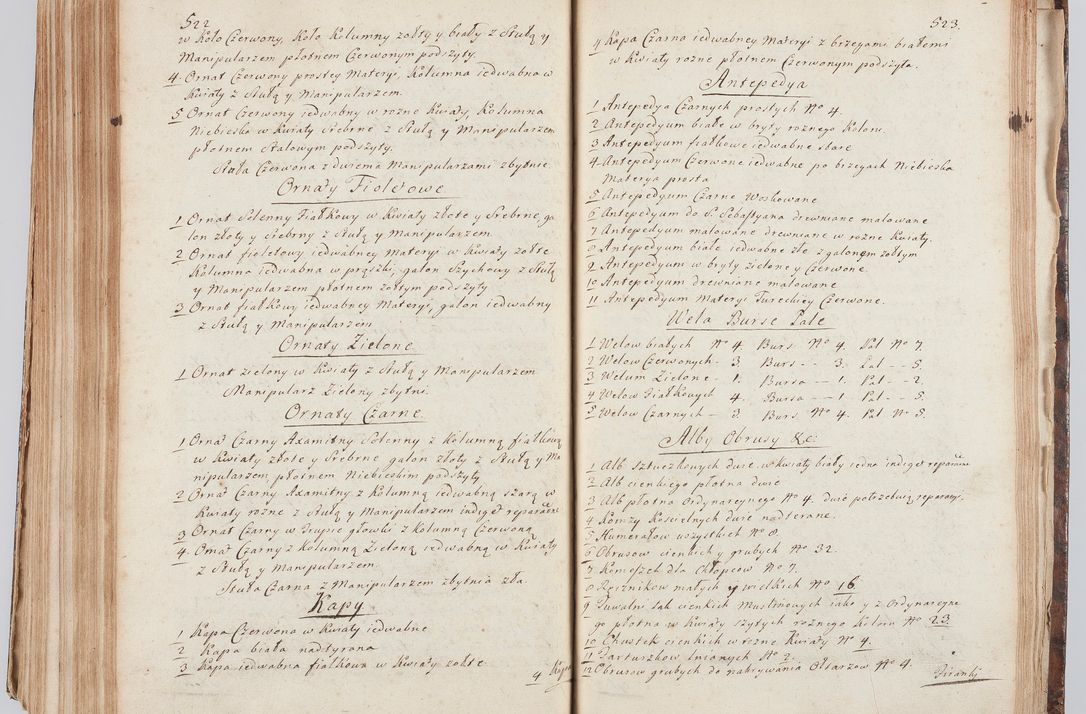 522
w Koło Czerwony, Koło Kolumny zołty y biały z Stułą y
Manipularzem płotnem Czerwonym podszyty.
4. Ornat Czerwony prostey Materyi, Kolumna iedwabna w
Kwiaty z Stułą y Manipularzem.
5 Ornat Czerwony iedwabny w rozne Kwiaty, Kolumna
Niebieska w Kwiaty Srebrne z Stułą y Manipularzem
płotnem Stalowym podszyty.
Stuła Czerwona z dwiema Manipularzami zbytnie.
Ornaty Fioletowe
1 Ornat Solenny Fiałkowy w Kwiaty złote y Srebrne, ga
lon złoty y Srebrny z Stułą y Manipularzem
2 Ornat fioletowy iedwabney Materyi w Kwiaty zołte
Kolumna iedwabna w prąszki, galon Szychowy z Stułą
y Manipularzem płotnem zołtym podszyty
3 Ornat fiałkowy iedwabney Materyi, galon iedwabny
z Stułą y Manipularzem
Ornaty Zielone
1 Ornat zielony w Kwiaty z Stułą y Manipularzem
Manipularz Zielony zbytni.
Ornaty Czarne.
1 Ornat Czarny Axamitny Solenny z Kolumną fiałkową
w Kwiaty złote y Srebrne galon złoty z Stułą y Ma
nipularzem płotnem Niebieskim podszyty
2 Ornat Czarny Axamitny z Kolumną iedwabną szarą w
Kwiaty rozne z Stułą y Manipularzem indiget reparatione
3 Ornat Czarny w Trupie głowki z Kolumną Czerwoną
4. Ornat Czarny z Kolumną Zieloną iedwabną w Kwiaty
z Stułą y Manipularzem.
Stuła Czarna z Manipularzem zbytnia zła.
Kapy
1 Kapa Czerwona w Kwiaty iedwabne
2 Kapa biała nadtyrana
3 Kapa iedwabna fiałkowa w Kwiaty zołte
4 Kapa
523.
4 Kapa Czarna iedwabney Materyi z brzegami białemi
w Kwiaty rozne płotnem Czerwonym podszyta.
Antepedya
1 Antepedya Czarnych prostych No 4.
2 Antepedyum białe w bryty roznego Koloru.
3 Antepedyum fiałkowe iedwabne stare
4 Antepedyum Czerwone iedwabne po brzegach Niebieska
Materya prosta
5 Antepedyum Czarne Woskowane
6 Antepedyum do S. Sebastyana drewniane malowane
7 Antepedyum malowane drewniane w rozne Kwiaty.
8 Antepedyum białe iedwabne złe z galonem zołtym
9 Antepedyum w bryty zielone y Czerwone.
10 Antepedyum drewniane malowane
11 Antepedyum Materyi Tureckiey Czerwone.
Wela Burse Pale
1 Welow białych No 4. Burs No 4. Pal No 7.
2 Welow Czerwonych - 3. Burs - - 3. Pal - - 5.
3 Welum Zielone - 1. Bursa - - 1. Pal - - 2.
4 Welow Fiałkowych 4. Bursa - - 1 Pal - - 5.
5 Welow Czarnych - 3. Burs No 4. Pal No 5.
Alby Obrusy &c:
1 Alb Sztuczkowych dwie w kwiaty biały iedna indiget reparatione
2 Alb cienkiego płotna dwie
3 Alb płotna Ordynaryinego No 4. dwie potrzebuią reparacyi.
4 Komży Koscielnych dwie nadterane.
5 Humerałow wszystkich No 8.
6 Obrusow cienkich y grubych No 32.
7 Komeszek dla Chłopcow No 7.
8 Ręcznikow małych y wielkich No 16
9 Tuwalni tak cienkich Muslinowych iako y z Ordynaryine
go płotna w Kwiaty szytych roznego Koloru No 23.
10 Chustek cienkich w rozne Kwiaty No 4.
11 Fartuszkow lnianych No 2.
12 Obrusow grubych do nakrywania Ołtarzow No 4.
Firanki